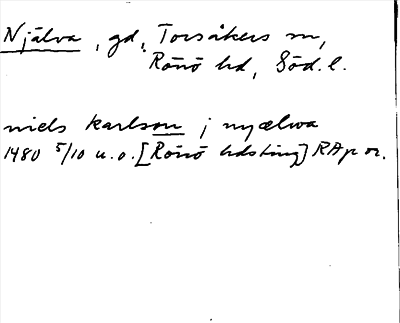 Njälva, gd, Torsåkers sn,
Rönö hd, Söd. l.
niels karlson j nyælwa
1480 5/10 u. o. [Rönö hdsting] RAp or.